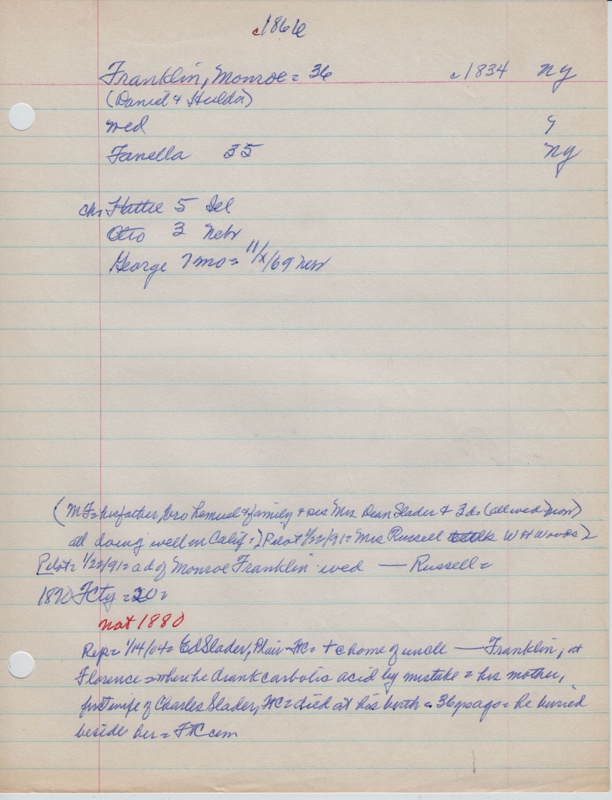 c1866
Franklin, Monroe = 36 c1834 ny
(Daniel & Hulda)
wed
Fanella 35 ny
chs Hattie 5 Del
Otto 3 Nebr
George 7 mo = 11/x/69 Nebr
(M F = her father, bro Lemuel & family & sis Mrs Dean Slader & 3 ds (all wed now)
all doing well in Calif =) Pilot 1/22/91 = Mrs Russell W H Woods)
Pilot = 1/22/91 = a d of Monroe Franklin wed — Russell =
1870 FCty = 20 =
not 1880
Rep = 1/14/04 = Ed Slader, Blair = home of uncle — Franklin, at
Florence = when he drank carbolic acid by mistake = his mother,
first wife of Charles Slader, FtC = died at his birth = 36 yrs ago = he buried
beside her = FtC cem